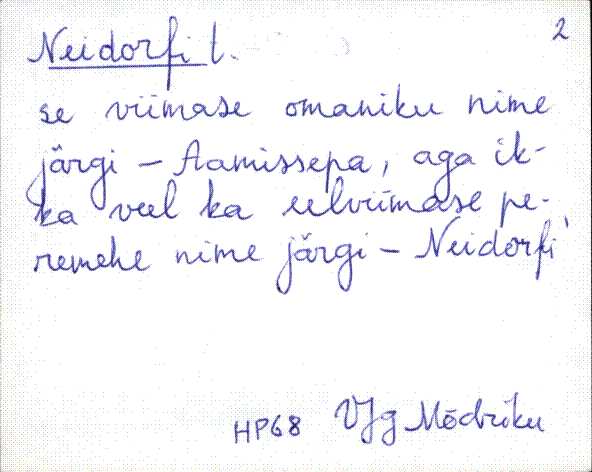 2
Neidorfi t.
se viimase omaniku nime
järgi – Aamissepa, aga ik-
ka veel ka eelviimase pe-
remehe nime järgi – Neidorfi
HP68 VJg Mõdriku